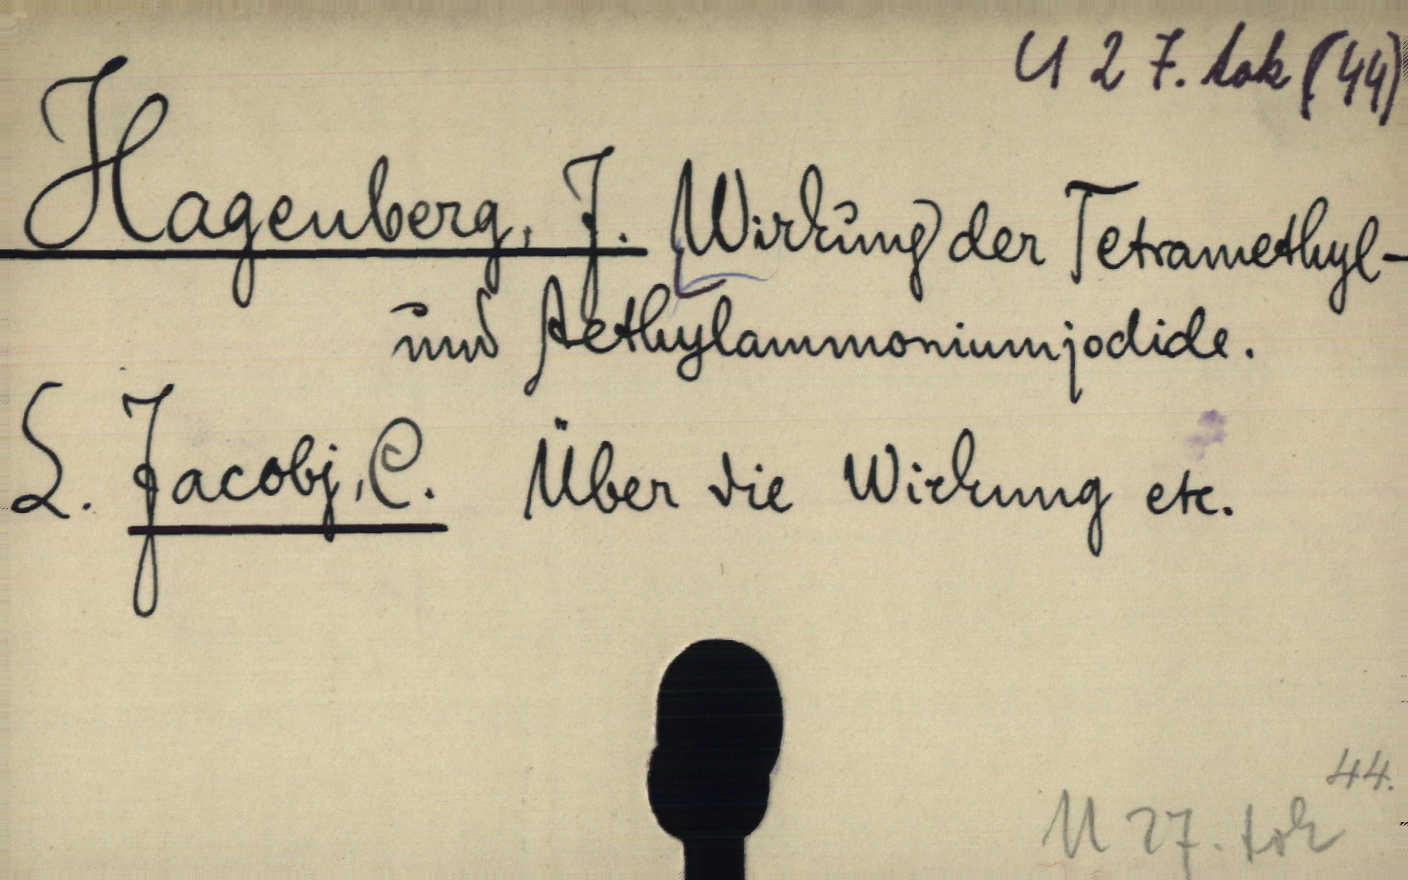 U 27. tok (44)
Hagenberg, J. Wirkung der Tetramethyl-
und Aethylammoniumjodide.
S. Jacobj, C. Über die Wirkung etc.
44.
U 27. tok